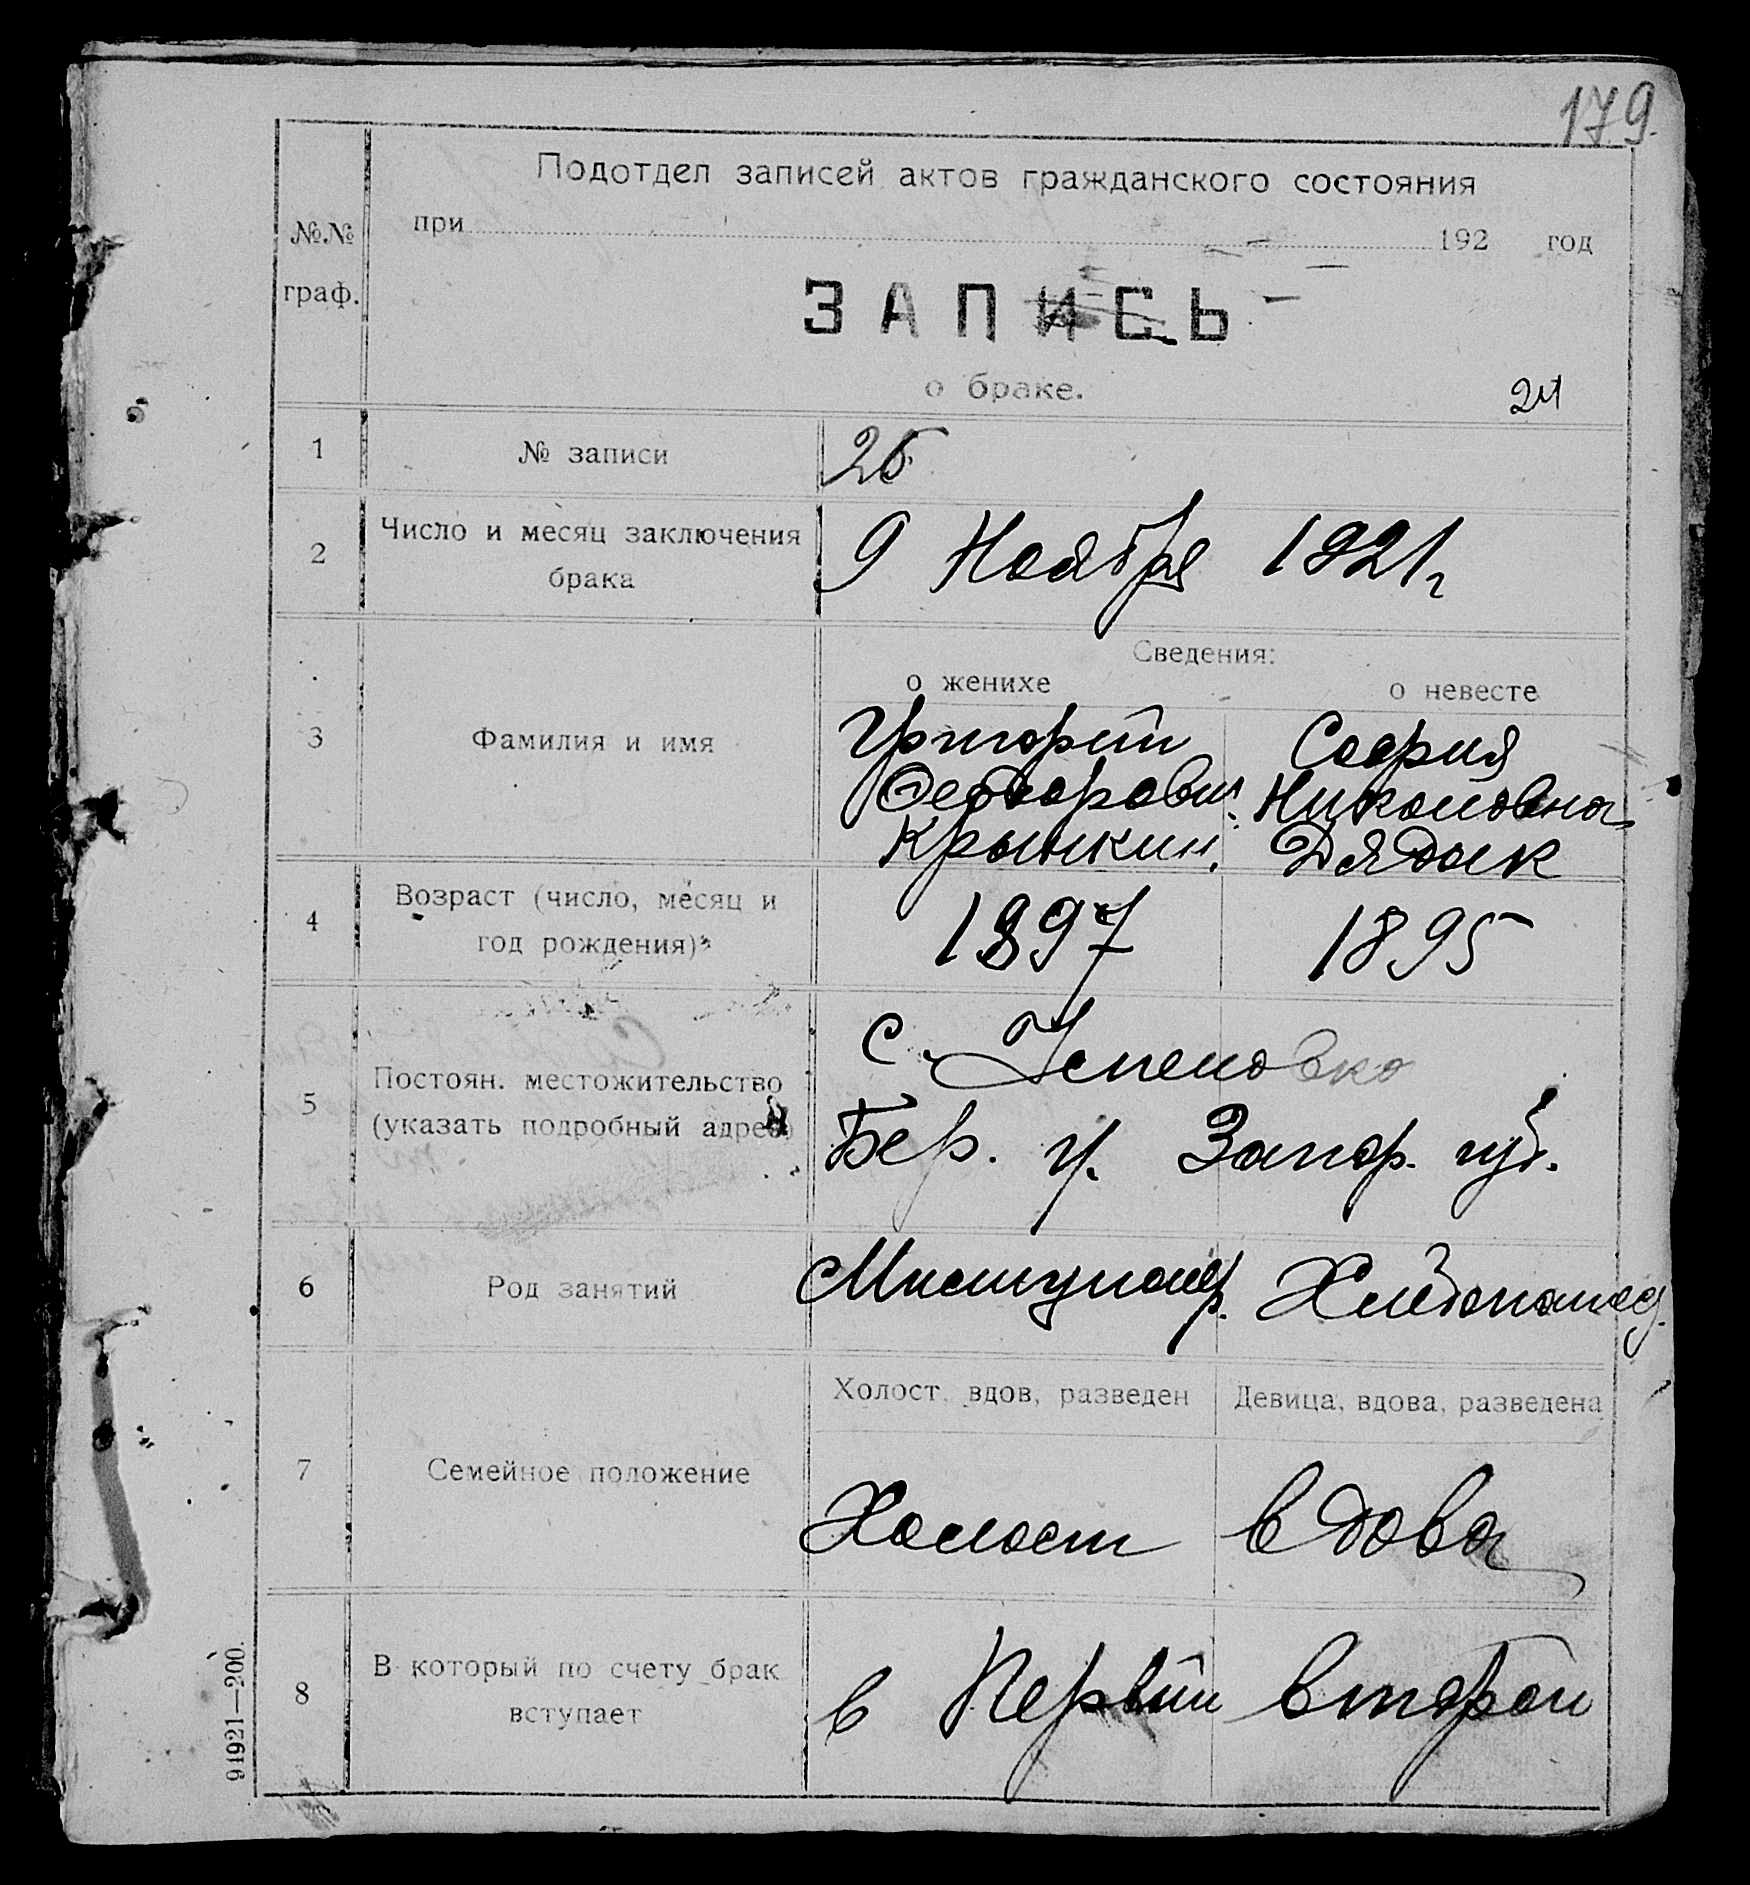 179.
Подотдел записей актов гражданского состояния
№№ граф.
при 192 год
ЗАПИСЬ
о браке.
24
1 № записи 25
2 Число и месяц заключения брака 9 Ноября 1921 г
Сведения:
о женихе о невесте
3 Фамилия и имя
Григорий София
Федорович. Николовна
Крынкин. Дядык
4 Возраст (число, месяц и год рождения) 1897 1895
5 Постоян. местожительство (указать подробный адрес)
с. Успеновко
Бер. у. Запор. губ.
6 Род занятий Милиционер. Хлебопашец.
Холост, вдов, разведен Девица, вдова, разведена
7 Семейное положение Холост вдова
8 В который по счету брак вступает в Первый второй
91921—200.